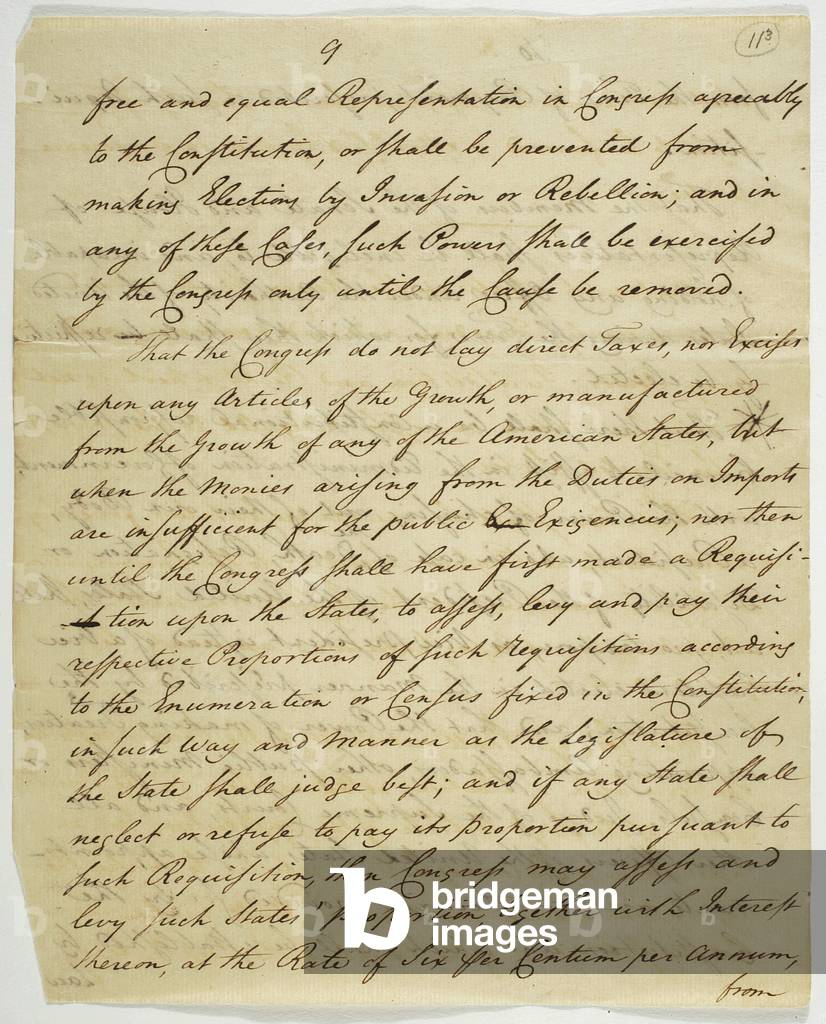 9
113
free and equal Representation in Congress agreeably
to the Constitution, or shall be prevented from
making Elections by Invasion or Rebellion; and in
any of these Cases, such Powers shall be exercised
by the Congress only until the Cause be removed.
That the Congress do not lay direct Taxes, nor Excises
upon any Articles of the Growth, or manufactured
from the Growth of any of the American States, but
when the Monies arising from the Duties on Imports
are insufficient for the public Exigencies; nor then
until the Congress shall have first made a Requisi-
tion upon the States, to assess, levy and pay their
respective Proportions of such requisitions according
to the Enumeration or Census fixed in the Constitution,
in such way and manner as the Legislature of
the State shall judge best; and if any State shall
neglect or refuse to pay its proportion pursuant to
such Requisition, then Congress may assess and
levy such States' proportion together with Interest
thereon, at the Rate of Six per Centum per Annum,
from
b bridgeman
images